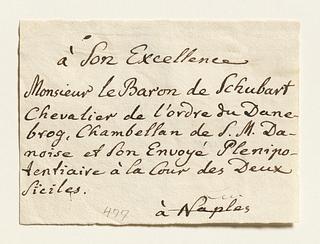 à Son Excellence
Monsieur le Baron de Schubart
Chevalier de l'ordre du Dane-
brog, Chambellan de S. M. Da-
noise et Son Envoyé Plenipo-
tentiaire à la Cour des Deux
Siciles.
à Naples
477